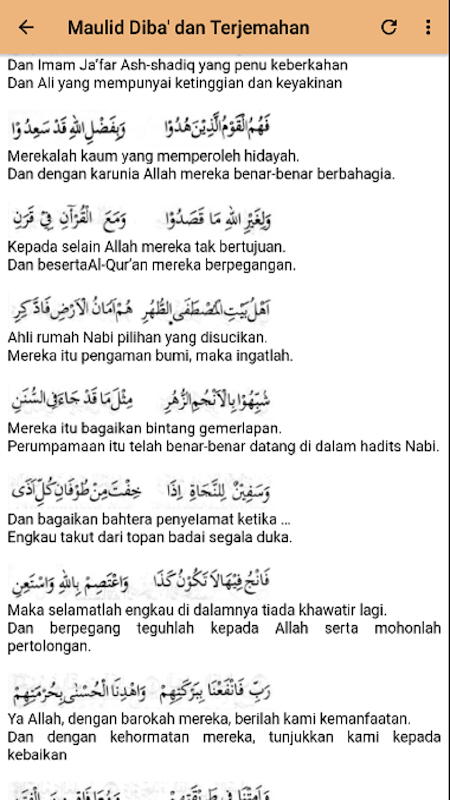 Maulid Diba' dan Terjemahan
Dan Imam Ja'far Ash-shadiq yang penu keberkahan
Dan Ali yang mempunyai ketinggian dan keyakinan
فَهُمُ الْقَوْمُ الَّذِيْنَ هُدُوْا وَبِفَضْلِ اللهِ قَدْ سَعِدُوْا
Merekalah kaum yang memperoleh hidayah.
Dan dengan karunia Allah mereka benar-benar berbahagia.
وَلِغَيْرِ اللهِ مَا قَصَدُوْا وَمَعَ الْقُرْآنِ فِيْ قَرَنِ
Kepada selain Allah mereka tak bertujuan.
Dan besertaAl-Qur'an mereka berpegangan.
اَهْلُ بَيْتِ الْمُصْطَفَى الطُّهُرِ هُمْ اَمَانُ الْاَرْضِ فَادَّكِرِ
Ahli rumah Nabi pilihan yang disucikan.
Mereka itu pengaman bumi, maka ingatlah.
شُبِّهُوْا بِالْاَنْجُمِ الزُّهُرِ مِثْلَ مَا قَدْ جَاءَ فِي السُّنَنِ
Mereka itu bagaikan bintang gemerlapan.
Perumpamaan itu telah benar-benar datang di dalam hadits Nabi.
وَسَفِيْنٌ لِلنَّجَاةِ اِذَا خِفْتَ مِنْ طُوْفَانِ كُلِّ اَذَى
Dan bagaikan bahtera penyelamat ketika ...
Engkau takut dari topan badai segala duka.
فَانْجُ فِيْهَا لَا تَكُوْنُ كَذَا وَاعْتَصِمْ بِاللهِ وَاسْتَعِنِ
Maka selamatlah engkau di dalamnya tiada khawatir lagi.
Dan berpegang teguhlah kepada Allah serta mohonlah
pertolongan.
رَبِّ فَانْفَعْنَا بِبَرْكَتِهِمْ وَاهْدِنَا الْحُسْنَى بِحُرْمَتِهِمْ
Ya Allah, dengan barokah mereka, berilah kami kemanfaatan.
Dan dengan kehormatan mereka, tunjukkan kami kepada
kebaikan